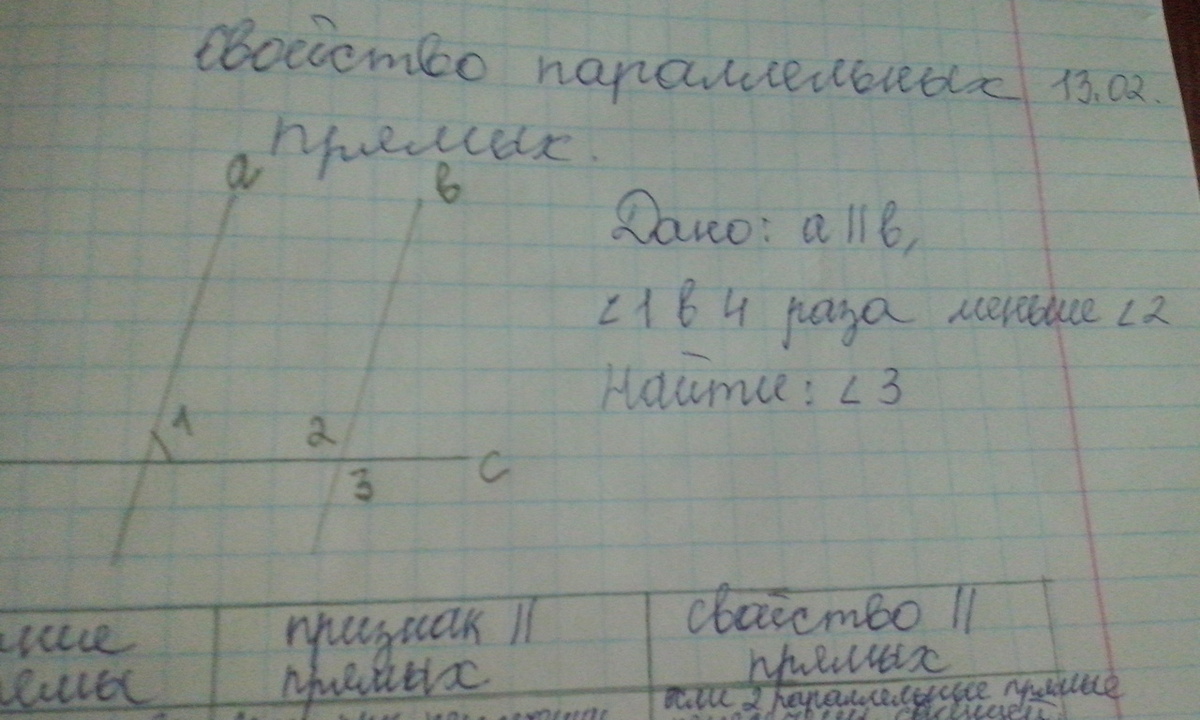 Свойство параллельных 13.02.
прямых.
а
в
Дано: а || в,
∠1 в 4 раза меньше ∠2
Найти: ∠3
1
2
3
с
признак ||
прямых
свойство ||
прямых
2 параллельные прямые